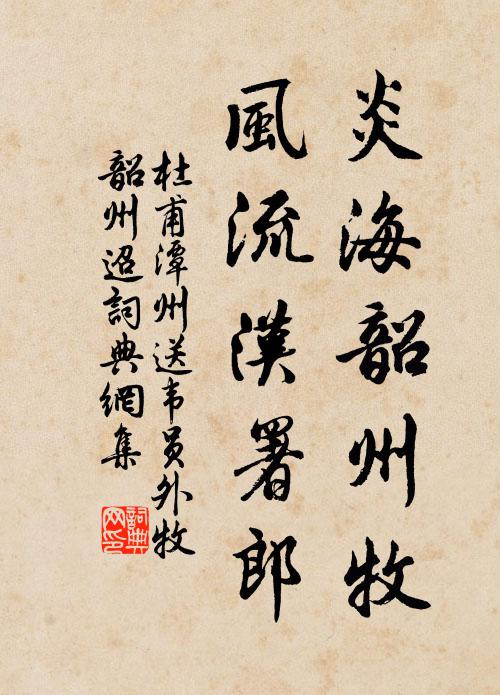 炎海韶州牧
風流漢署郎
杜甫潭州送韦员外牧
韶州迢詞典網集
詞典
网印